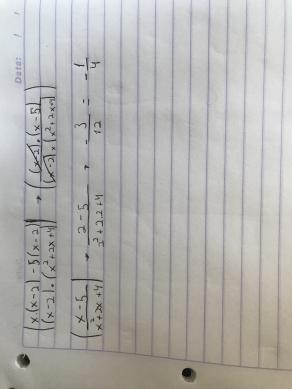 Data: / /
(x.(x-2) -5(x-2) / (x-2).(x²+2x+4)) → ((x-2).(x-5) / (x-2).(x²+2x+4))
(x-5 / x²+2x+4) → 2-5 / 2²+2.2+4 → -3 / 12 = -1 / 4